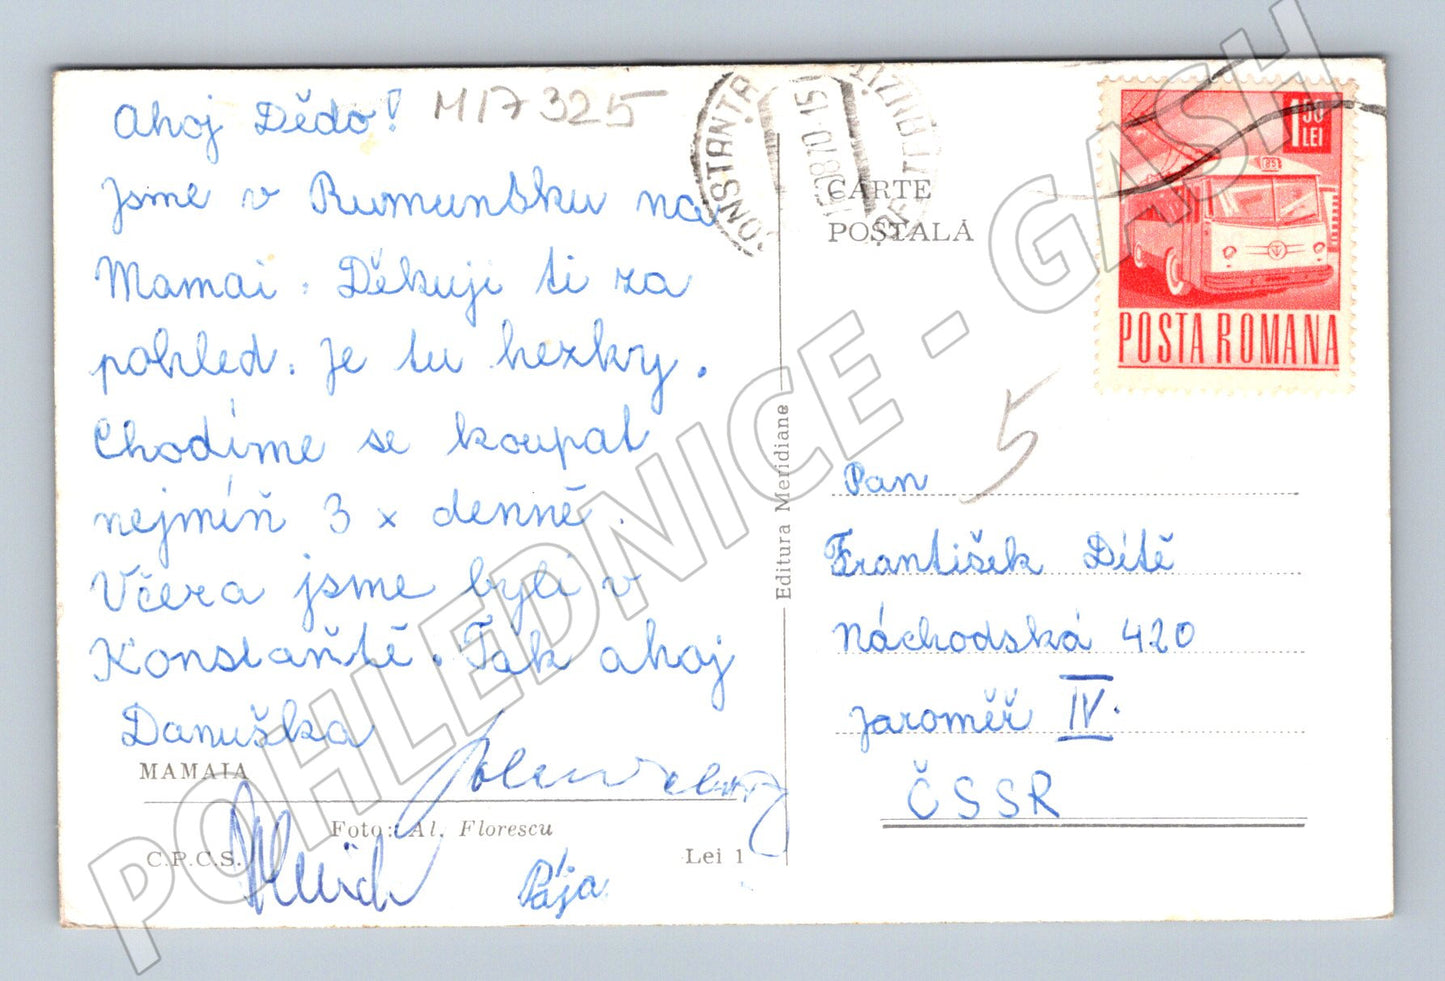 Ahoj Dědo!
M17325
Jsme v Rumunsku na
Mamai. Děkuji ti za
pohled. Je tu hezky.
Chodíme se koupat
nejmíň 3 x denně.
Včera jsme byli v
Konstantě. Tak ahoj
Danuška
Pája
MAMAIA
Foto: Al. Florescu
C.P.C.S.
Lei 1
Editura Meridiane
CONSTANTA
CARTE
POȘTALĂ
1 50
LEI
POSTA ROMANA
5
Pan
František Dítě
Náchodská 420
Jaroměř IV.
ČSSR
POHLEDNICE - GASH